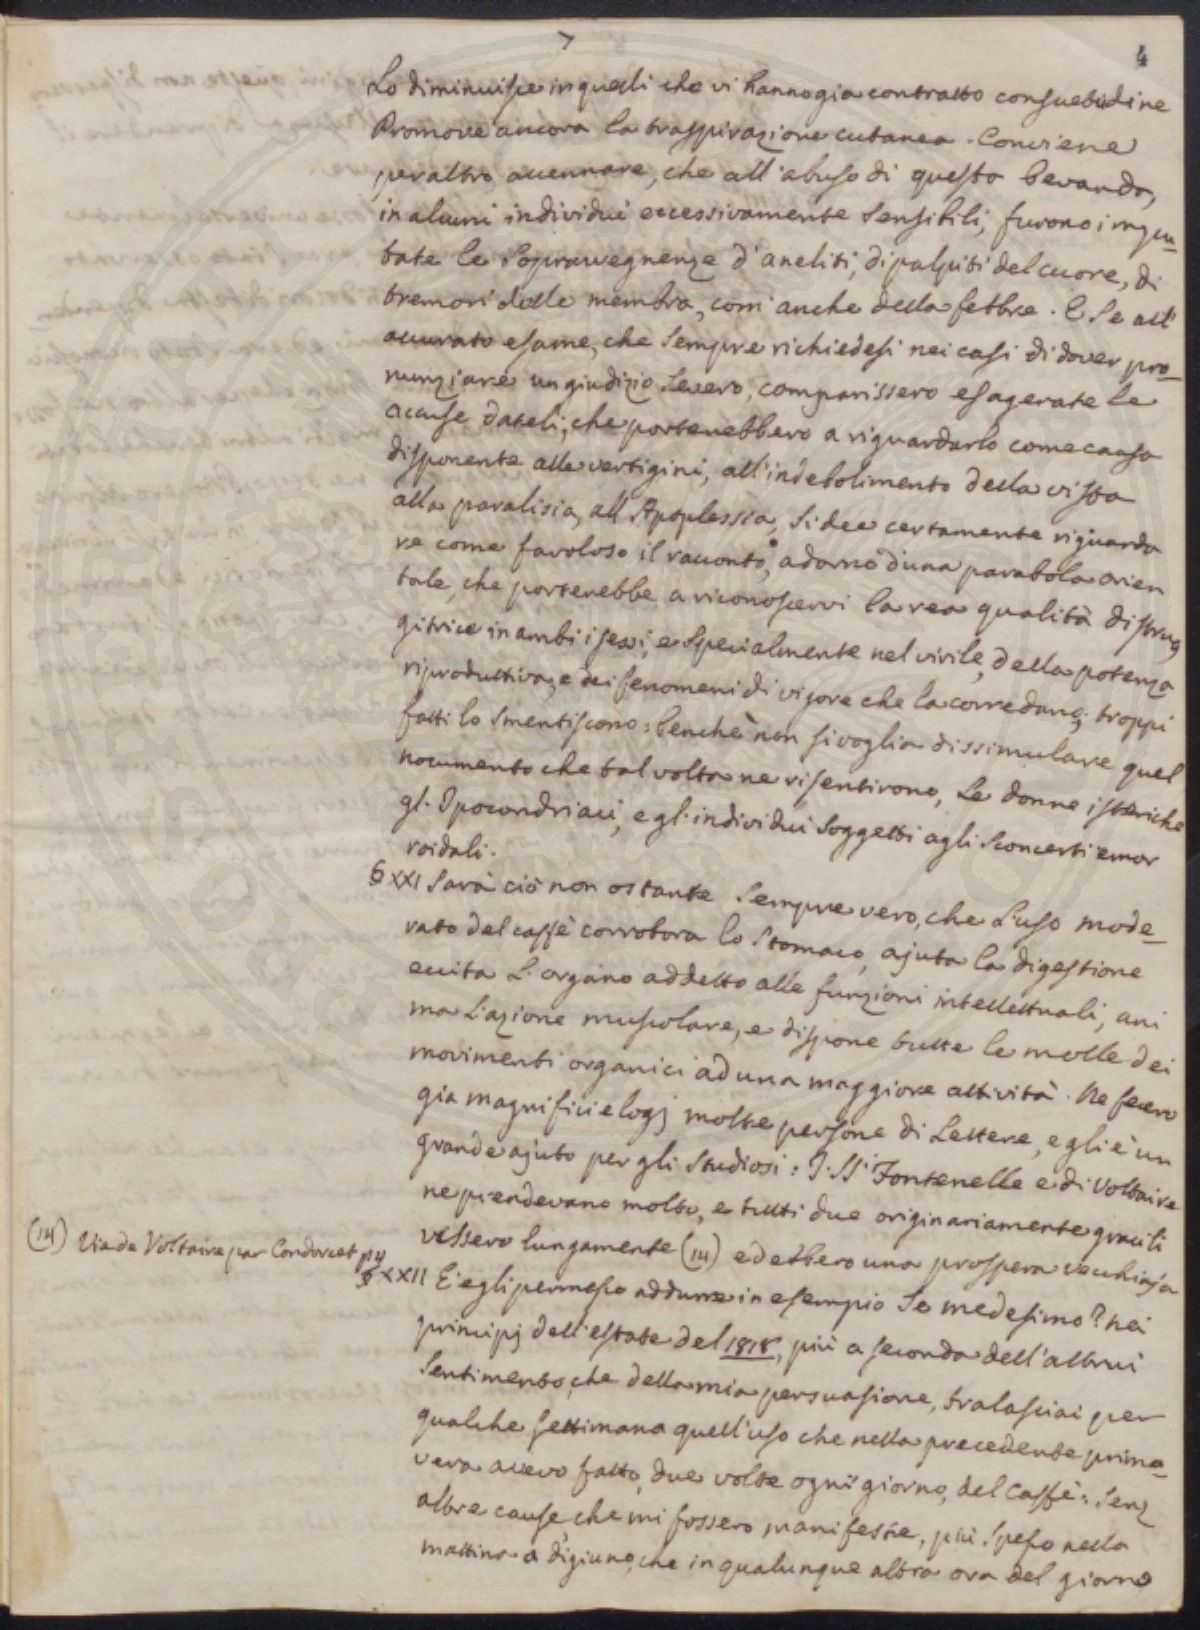 7
4
Lo diminuisce in quelli che vi hanno gia contratto consuetudine
Promove ancora la traspirazione cutanea. Conviene
peraltro accennare, che all'abuso di questa bevanda,
in alcuni individui eccessivamente sensibili, furono impu-
tate le sopravvegnenze d'aneliti, di palpiti del cuore, di
tremori delle membra, com'anche della febbre. E se all'
accurato esame, che sempre richiedesi nei casi di dover pro-
nunziare un giudizio severo, comparissero esagerate le
accuse dateli, che porterebbero a riguardarlo come causa
disponente alle vertigini, all'indebolimento della vista
alla paralisia, all'Apoplessia, si dee certamente riguarda
re come favoloso il racconto, adorno d'una parabola orien
tale, che porterebbe a riconoscervi la rea qualità distrug
gitrice in ambi i sessi, e specialmente nel virile, della potenza
riproduttiva, e dei fenomeni di vigore che la corredano; troppi
fatti lo smentiscono: benchè non si voglia dissimulare quel
nocumento che tal volta ne risentirono, le donne isteriche
gl'Ipocondriaci, e gl'individui soggetti agli sconcerti emor
roidali.
§ XXI Sarà ciò non ostante sempre vero, che l'uso mode-
rato del caffè corrobora lo stomaco, ajuta la digestione
eccita l'organo addetto alle funzioni intellettuali, ani
ma l'azione muscolare, e dispone tutte le molle dei
movimenti organici ad una maggiore attività. Ne fecero
gia magnifici elogj molte persone di Lettere, e gli è un
grande ajuto per gli studiosi: I. SS.i Fontenelle e di Voltaire
ne prendevano molto, e tutti due originariamente gracili
vissero lungamente (14) ed ebbero una prospera vecchiaja
(14) Via de Voltaire par Condorcet p.
§ XXII E' egli permesso addurre in esempio se medesimo? nei
principj dell'estate del 1818, più a seconda dell'altrui
sentimento, che della mia persuasione, tralasciai per
qualche settimana quell'uso che nella precedente prima-
vera avevo fatto, due volte ogni giorno, del Caffè: senz
altre cause, che mi fossero manifeste, più spesso nella
mattina a digiuno, che in qualunque altra ora del giorno